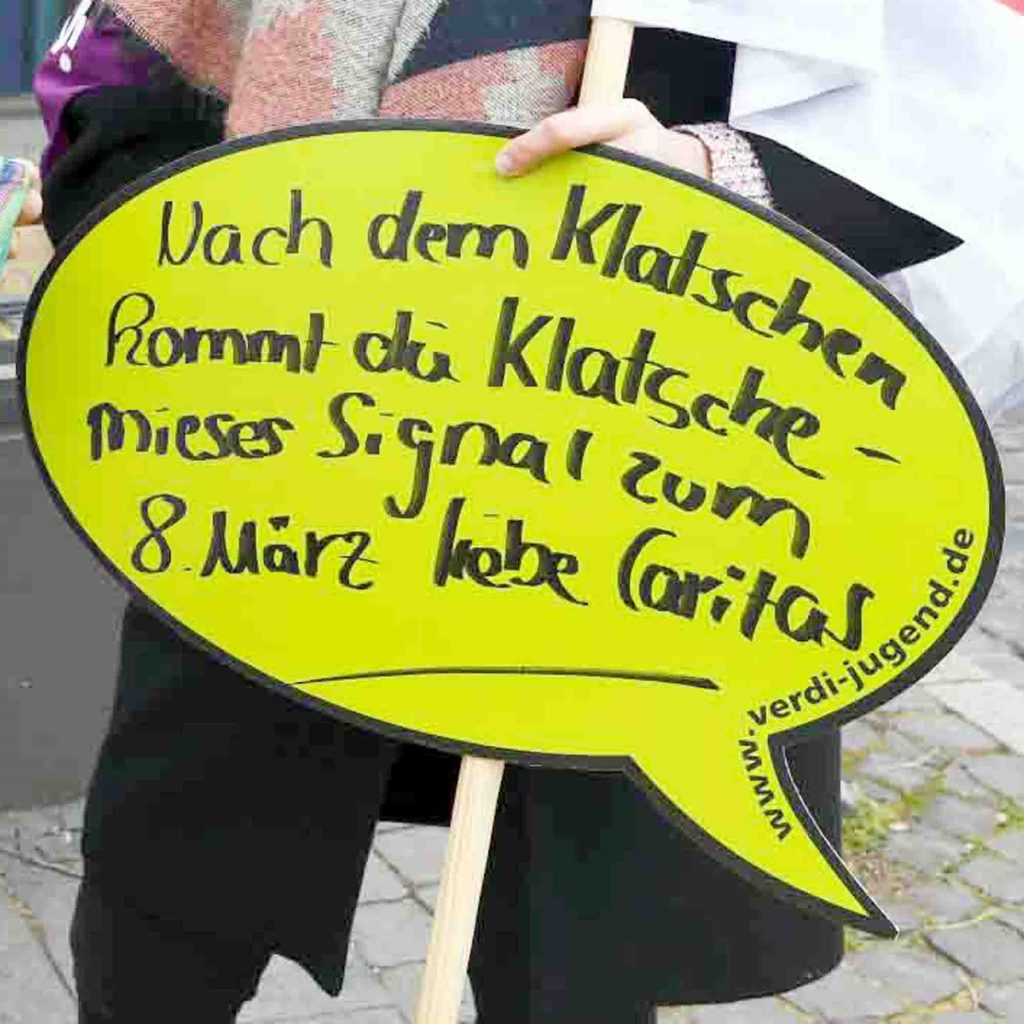 Nach dem Klatschen
kommt die Klatsche -
mieses Signal zum
8. März liebe Caritas
www.verdi-jugend.de